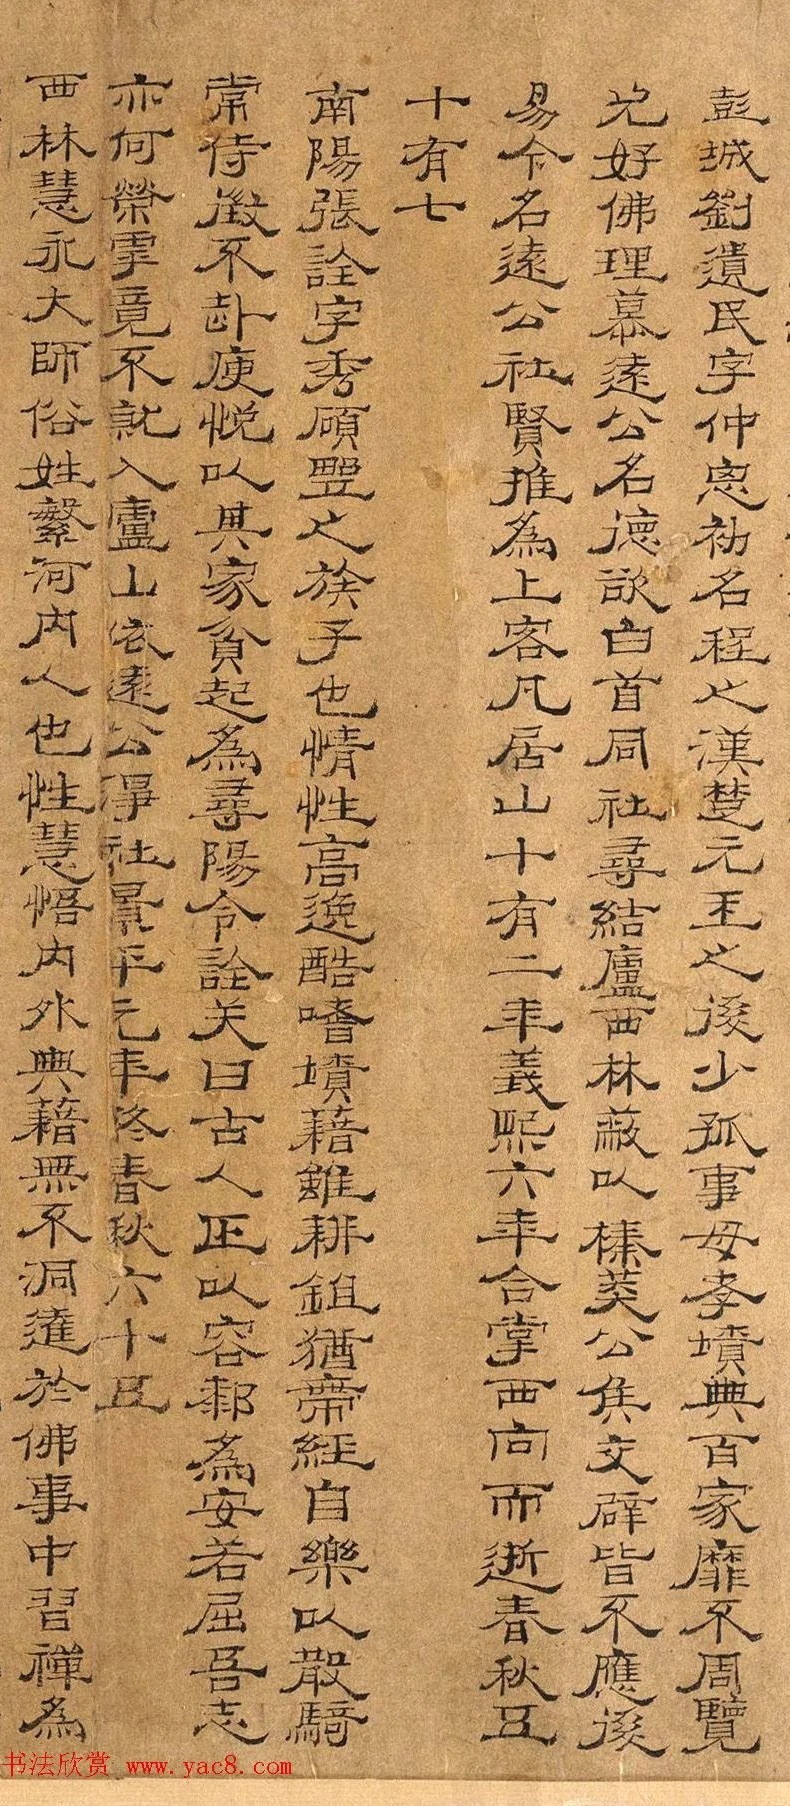 彭城劉遺民字仲思初名程之漢楚元王之後少孤事母孝墳典百家靡不周覽
尤好佛理慕遠公名德欲白首同社尋結廬西林蔽以榛莽公侯交辟皆不應後
易今名遠公社賢推為上客凡居山十有二年義熙六年合掌西向而逝春秋五
十有七
南陽張詮字秀碩野之族子也情性高逸酷嗜墳藉雖耕鉏猶帶經自樂以散騎
常侍徵不赴庾悅以其家貧起為尋陽令詮笑曰古人正以容鄰為安若屈吾志
亦何榮乎竟不就入廬山依遠公淨社景平元年終春秋六十五
西林慧永大師俗姓繁河內人也性慧悟內外典藉無不洞達於佛事中習禪為
书法欣赏 www.yac8.com